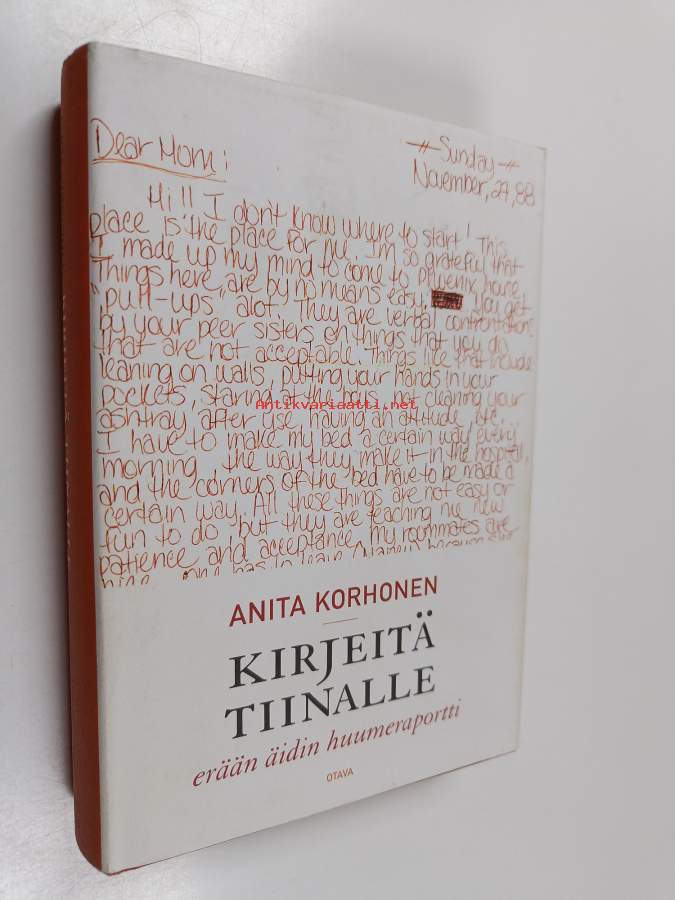 Dear Mom:
Sunday
November, 27, 88
Hi!! I don't know where to start! This
place is the place for me. I'm so grateful that
I made up my mind to come to phoenix house.
Things here, are by no means easy. You get
"pull-ups" alot. They are verbal confrontations
by your peer sisters on things that you do
that are not acceptable. Things like that include
leaning on walls, putting your hands in your
pockets, staring at the boys, not cleaning your
ashtray after use, having an attitude, etc.
I have to make my bed a certain way every
morning, the way they make it in the hospital,
and the corners of the bed have to be made a
certain way. All these things are not easy or
fun to do, but they are teaching me new
patience and acceptance. my roommates are
has to leave because
Antikvariaatti.net
ANITA KORHONEN
KIRJEITÄ
TIINALLE
erään äidin huumeraportti
OTAVA